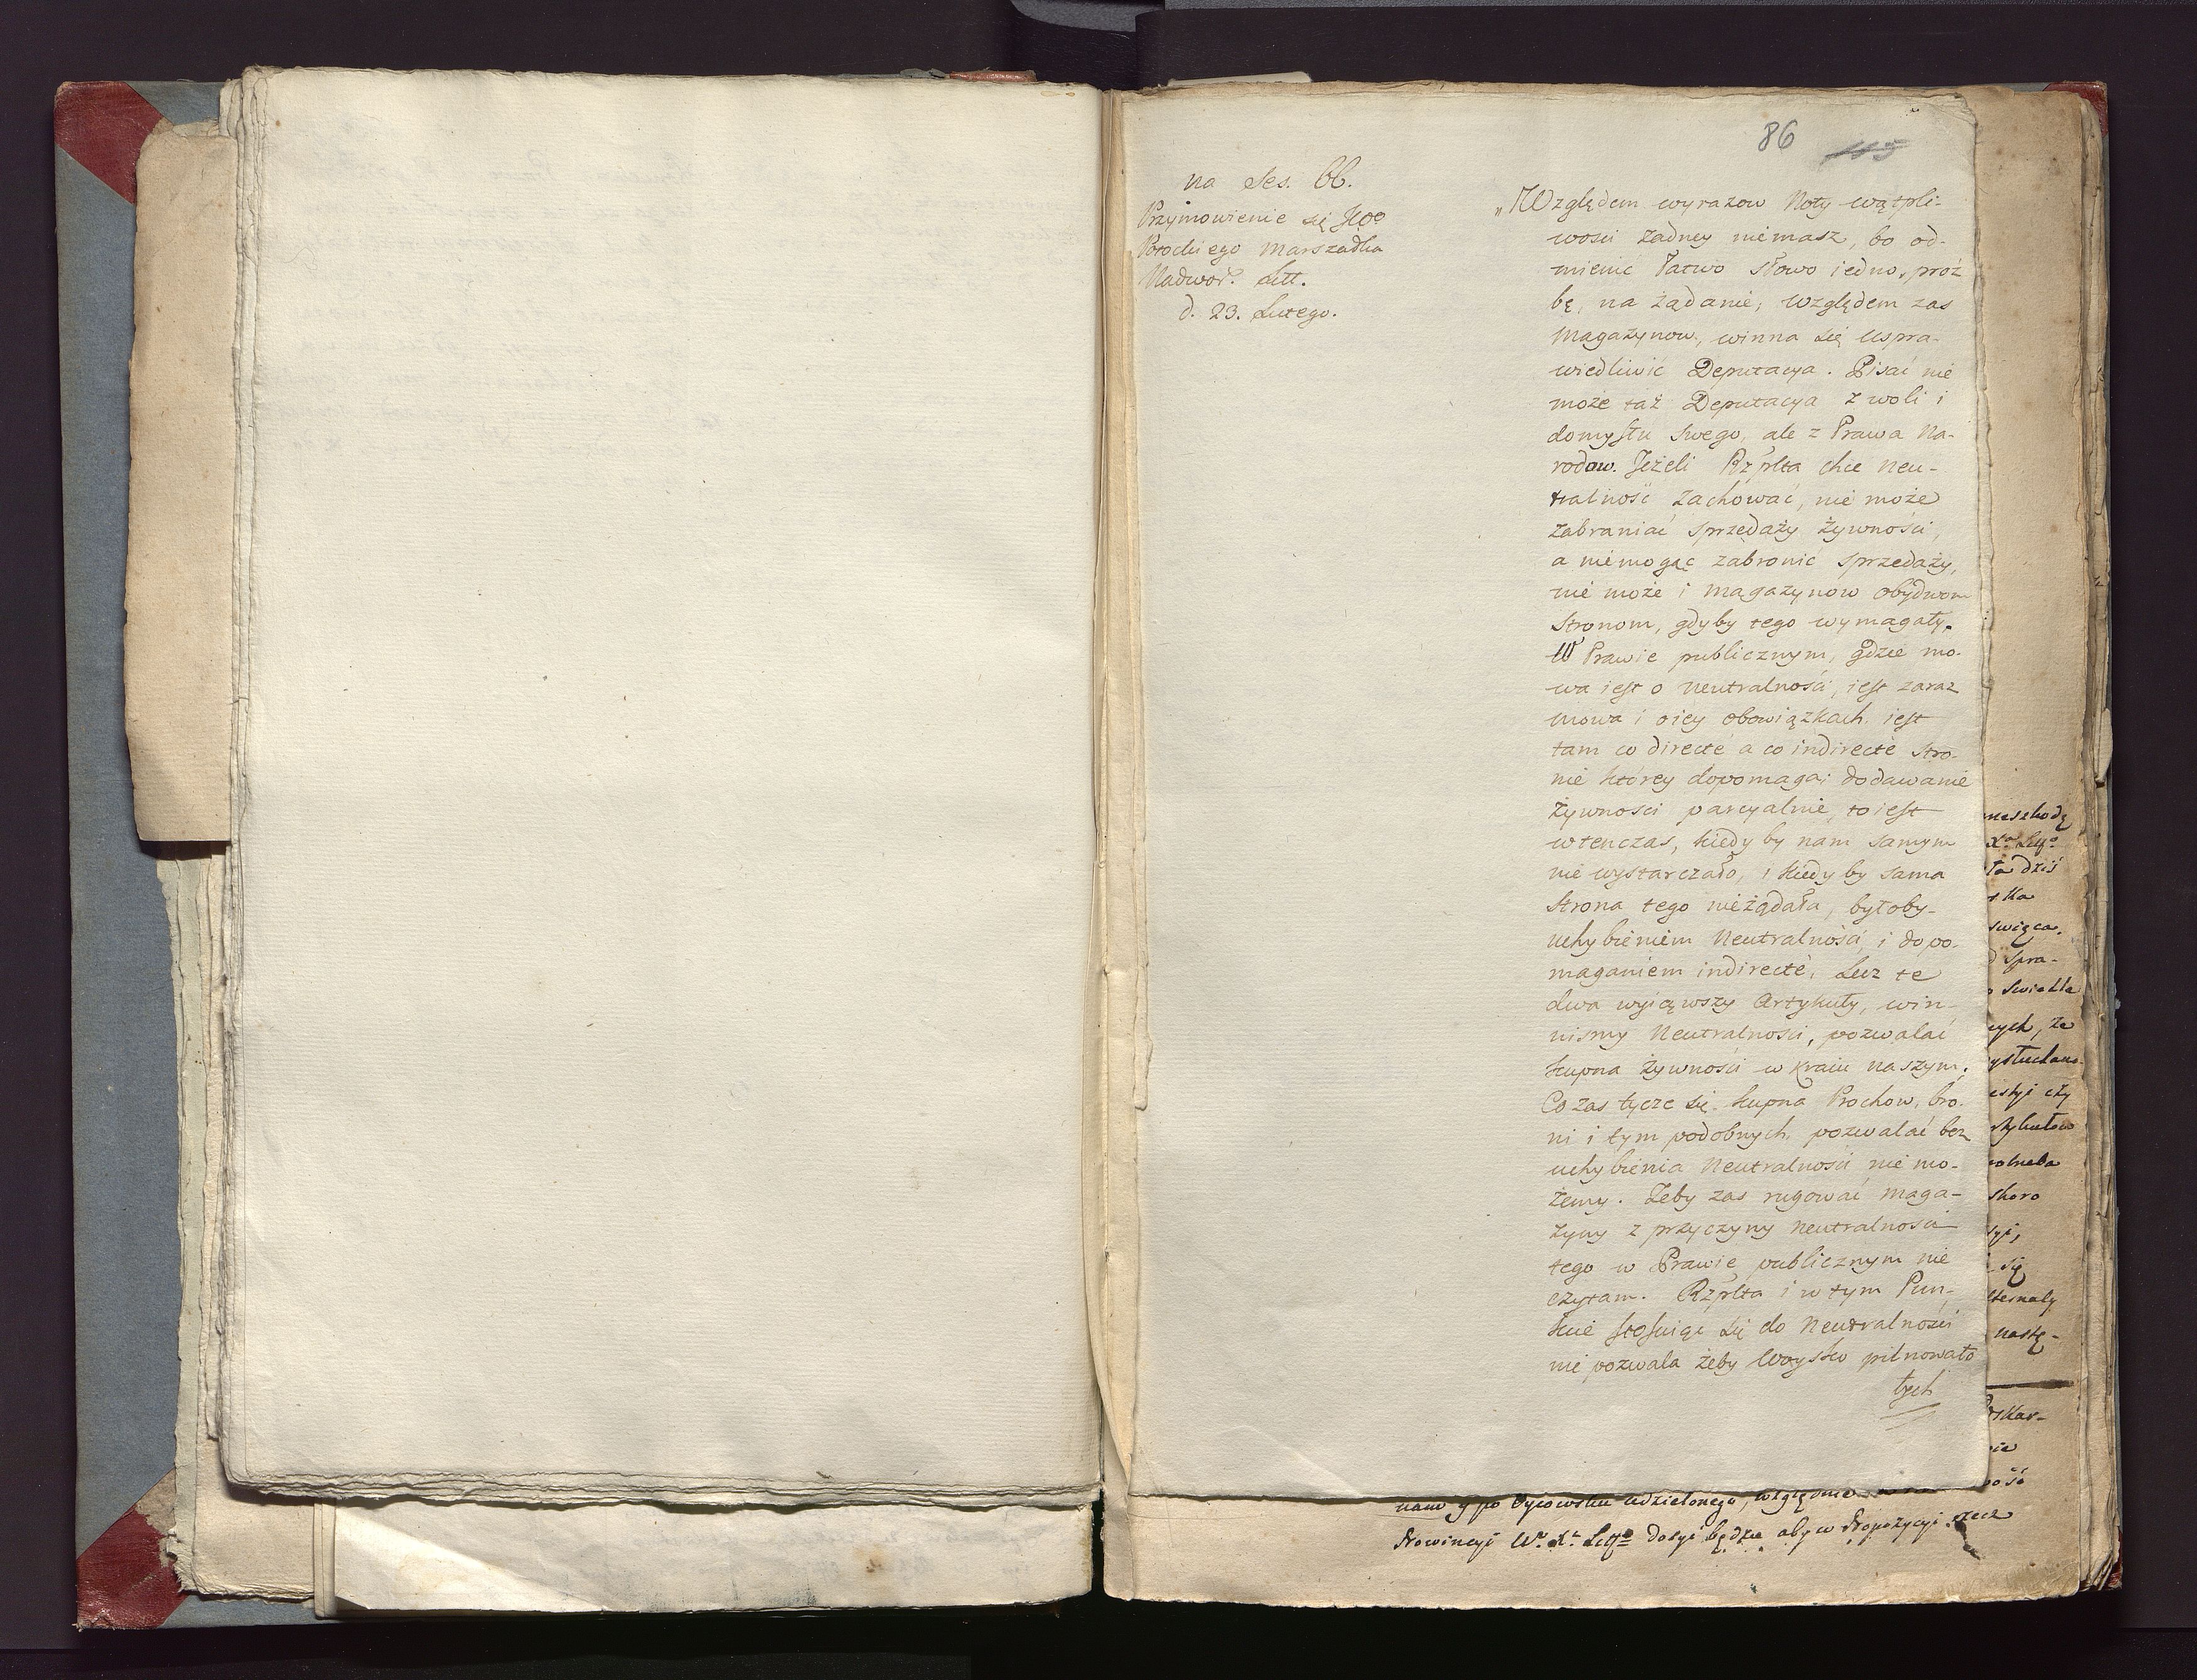 86 115
na Ses. 66.
Przymowienie się JWo
Potockiego Marszałka
Nadwor. Litt.
d. 23. Lutego.
„Względem wyrazow Noty wątpli-
wosci żadney niemasz, bo od-
mienić łatwo słowo iedno, proź
bę, na żądanie, względem zas
magazynow, winna się uspra-
wiedliwić Deputacya. Pisać nie
może taż Deputacya z woli i
domysłu swego, ale z Prawa Na-
rodow. Jeżeli Rzplta chce neu-
tralność zachować, nie może
zabraniać sprzedaży żywności,
a niemogąc zabronić sprzedaży,
nie może i magazynow obydwom
stronom, gdyby tego wymagały.
W Prawie publicznym, gdzie mo-
wa iest o neutralności, iest zaraz
mowa i oiey obowiązkach. iest
tam co directé a co indirecté stro-
nie ktorey dopomaga; dodawanie
żywnosci parcyalnie, to iest
wtenczas, kiedy by nam samym
nie wystarczało, i kiedy by sama
strona tego nieżądała, byłoby-
uchybieniem Neutralności, i dopo-
maganiem indirecté, Lecz te
dwa wyiąwszy Artykuły, win-
nismy Neutralnosci, pozwalać
kupna żywności w kraiu naszym.
Co zas tycze się kupna Prochow, bro-
ni i tym podobnych, pozwalać bez
uchybienia Neutralności nie mo-
żemy. Żeby zas rugować maga-
zyny z przyczyny neutralności
tego w Prawie publicznym nie
czytam. Rzplta i w tym Pun-
kcie stosuiąc się do Neutralności
nie pozwala żeby Woysko pilnowało
tych
nieszkodę
Xa Litgo
ta dziś
ska
swięca.
spra-
swiatła
nych, że
wysłuchano-
czy
skoro
się
nastę-
udzielonego, względnie
Prowincyi W. X. Litgo dosyć będzie aby w Propozycyi rzecz